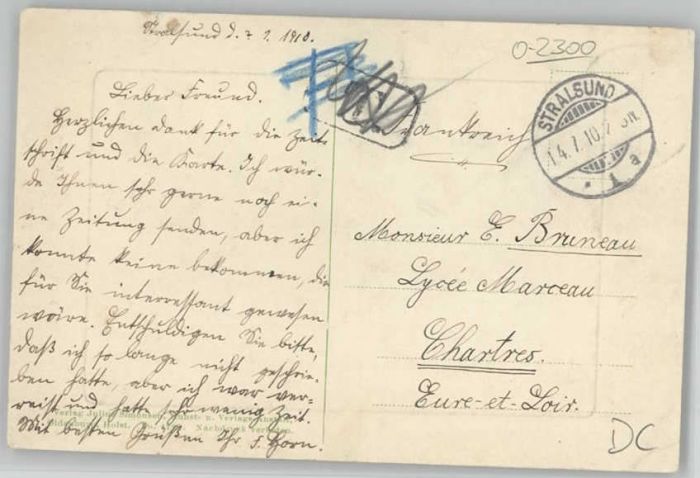 Stralsund d. 7. 1910.
Lieber Freund.
Herzlichen dank für die Zeit-
schrift und die Karte. Ich wür-
de Ihnen sehr gerne noch ei-
ne Zeitung senden, aber ich
konnte keine bekommen, die
für Sie interressant gewesen
wäre. Entschuldigen Sie bitte,
daß ich so lange nicht geschrie-
ben hatte, aber ich war ver-
reist und hatte sehr wenig Zeit.
Mit besten Grüßen Ihr F. Horn.
Verlag Julius Simonsen, Kunst- u. Verlags-Anstalt,
Oldenburg Holst. No. Nachdruck verboten.
0-2300
STRALSUND
14.7.10.7
1 a
T
Frankreich
Monsieur E. Bruneau
Lycée Marceau
Chartres.
Eure-et-Loir.
DC